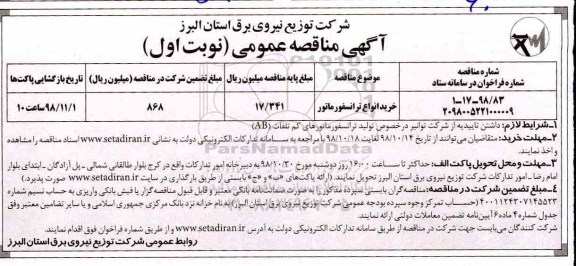 شرکت توزیع نیروی برق استان البرز
آگهی مناقصه عمومی (نوبت اول)
شماره مناقصه
شماره فراخوان در سامانه ستاد
موضوع مناقصه
مبلغ پایه مناقصه میلیون ریال
مبلغ تضمین شرکت در مناقصه (میلیون ریال)
تاریخ بازگشایی پاکت‌ها
۱-۱۷-۹۸/۸۳
۲۰۹۸۰۰۵۲۲۱۰۰۰۰۹
خرید انواع ترانسفورماتور
۱۷/۳۴۱
۸۶۸
۹۸/۱۱/۱ ساعت ۱۰
۱-شرایط لازم: داشتن تاییدیه از شرکت توانیر درخصوص تولید ترانسفورماتورهای کم تلفات (AB)
۲-مهلت خرید: متقاضیان می‌توانند از تاریخ ۹۸/۱۰/۱۴ لغایت ۹۸/۱۰/۱۸ با مراجعه به سامانه تدارکات الکترونیکی دولت به نشانی www.setadiran.ir اسناد مناقصه را مشاهده
و اخذ نمایند.
۳-مهلت و محل تحویل پاکت الف: حداکثر تا ساعت ۱۶:۰۰ روز دوشنبه مورخ ۹۸/۱۰/۳۰ به دبیرخانه امور تدارکات واقع در کرج بلوار طالقانی شمالی - پل آزادگان - ابتدای بلوار
امام رضا - امور تدارکات شرکت توزیع نیروی برق استان البرز تحویل نمایند. (ارائه پاکت‌های «ب» و «ج» بایستی از طریق بارگذاری در سایت www.setadiran.ir صورت پذیرد.)
۴-مبلغ تضمین شرکت در مناقصه: مناقصه‌گران بایستی سپرده مذکور را به صورت ضمانت‌نامه بانکی معتبر و قابل قبول مناقصه گزار یا فیش بانکی واریزی به حساب نسیم شماره
۴۰۰۱۱۲۴۳۰۷۱۴۵۵۲۳ (حساب تمرکز وجوه سپرده بودجه عمومی شرکت توزیع نیروی برق استان البرز) به نام خزانه نزد بانک مرکزی جمهوری اسلامی و یا سایر تضامین معتبر وفق
جدول شماره ۴ ماده ۶ آیین‌نامه تضمین معاملات دولتی ارائه نمایند.
شرکت کنندگان می‌بایست جهت شرکت در مناقصه از طریق سامانه تدارکات الکترونیکی دولت به آدرس www.setadiran.ir و از طریق شماره فراخوان فوق اقدام نمایند.
روابط عمومی شرکت توزیع نیروی برق استان البرز